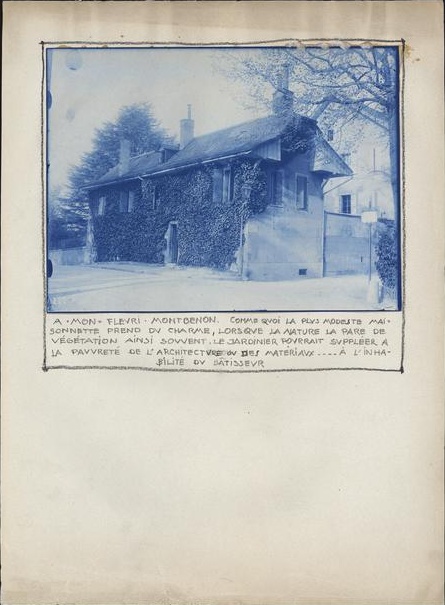 A · MON · FLEVRI · MONTBENON. COMME QUOI LA PLVS MODESTE MAI-
SONNETTE PREND DV CHARME, LORSQVE LA NATURE LA PARE DE
VÉGÉTATION AINSI SOVVENT, LE JARDINIER POVRRAIT SVPPLEER A
LA PAVVRETÉ DE L'ARCHITECTVRE OV DES MATERIAVX .... À L'INHA-
BILITÉ DV BÂTISSEVR